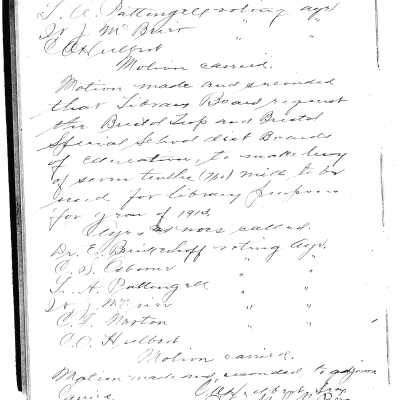 T. A. Pattengill voting aye
W. J. McBriar " "
C. O. Hulbert " "
Motion carried.
Motion made and seconded
that Library Board request
the Bristol Twp and Bristol
Special School dist Boards
of Education, to make levy
of seven tenths (7/10) mill to be
used for library purposes
for year of 1913.
Ayes & noes called.
Dr. E. Brinkerhoff voting aye.
C. S. Osborne " "
T. A. Pattengill " "
W. J. " "
C. F. Norton " "
C. O. Hulbert
Motion carried.
Motion made and seconded to adjourn
Carried.